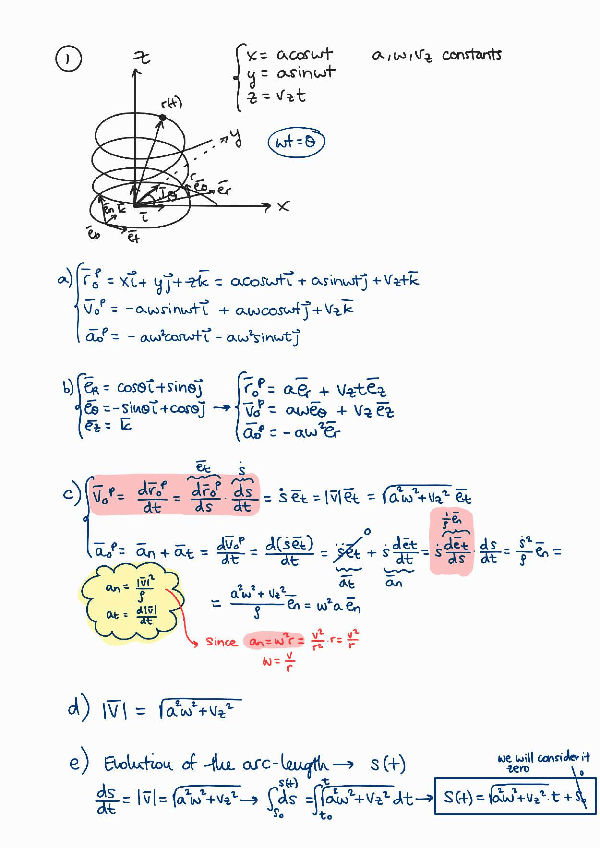 1
z
x = acoswt
y = asinwt
z = v_z t
a, w, v_z constants
r(t)
y
wt = θ
r
e̅θ e̅r
θ
x
e̅n k̅ i̅
e̅θ e̅t
a) r̅₀ᴾ = xi⃗ + yj⃗ + zk̅ = acoswt i⃗ + asinwt j⃗ + v_z t k̅
v̅₀ᴾ = -awsinwt i⃗ + awcoswt j⃗ + v_z k̅
a̅₀ᴾ = -aw²coswt i⃗ - aw²sinwt j⃗
b) e̅_R = cosθ i⃗ + sinθ j⃗
e̅_θ = -sinθ i⃗ + cosθ j⃗ →
e̅_z = k̅
r̅₀ᴾ = a e̅_r + v_z t e̅_z
v̅₀ᴾ = aw e̅_θ + v_z e̅_z
a̅₀ᴾ = -aw² e̅_r
e̅t ṡ
c) v̅₀ᴾ = dr̅₀ᴾ/dt = dr̅₀ᴾ/ds · ds/dt = ṡ e̅t = |v̅| e̅t = √(a²w² + v_z²) e̅t
1/ρ e̅n
a̅₀ᴾ = a̅n + a̅t = dv̅₀ᴾ/dt = d(ṡe̅t)/dt = s̈e̅t 0 + ṡ de̅t/dt = ṡ de̅t/ds · ds/dt = ṡ²/ρ e̅n =
a̅t a̅n
an = |v̅|²/ρ
at = d|v̅|/dt
= (a²w² + v_z²)/ρ e̅n = w²a e̅n
since an = w²r = v²/r² · r = v²/r
w = v/r
d) |v̅| = √(a²w² + v_z²)
e) Evolution of the arc-length → s(t)
we will consider it
zero
ds/dt = |v̅| = √(a²w² + v_z²) → ∫_{s₀}^{s(t)} ds = ∫_{t₀}^{t} √(a²w² + v_z²) dt → S(t) = √(a²w² + v_z²) · t + s₀ 0